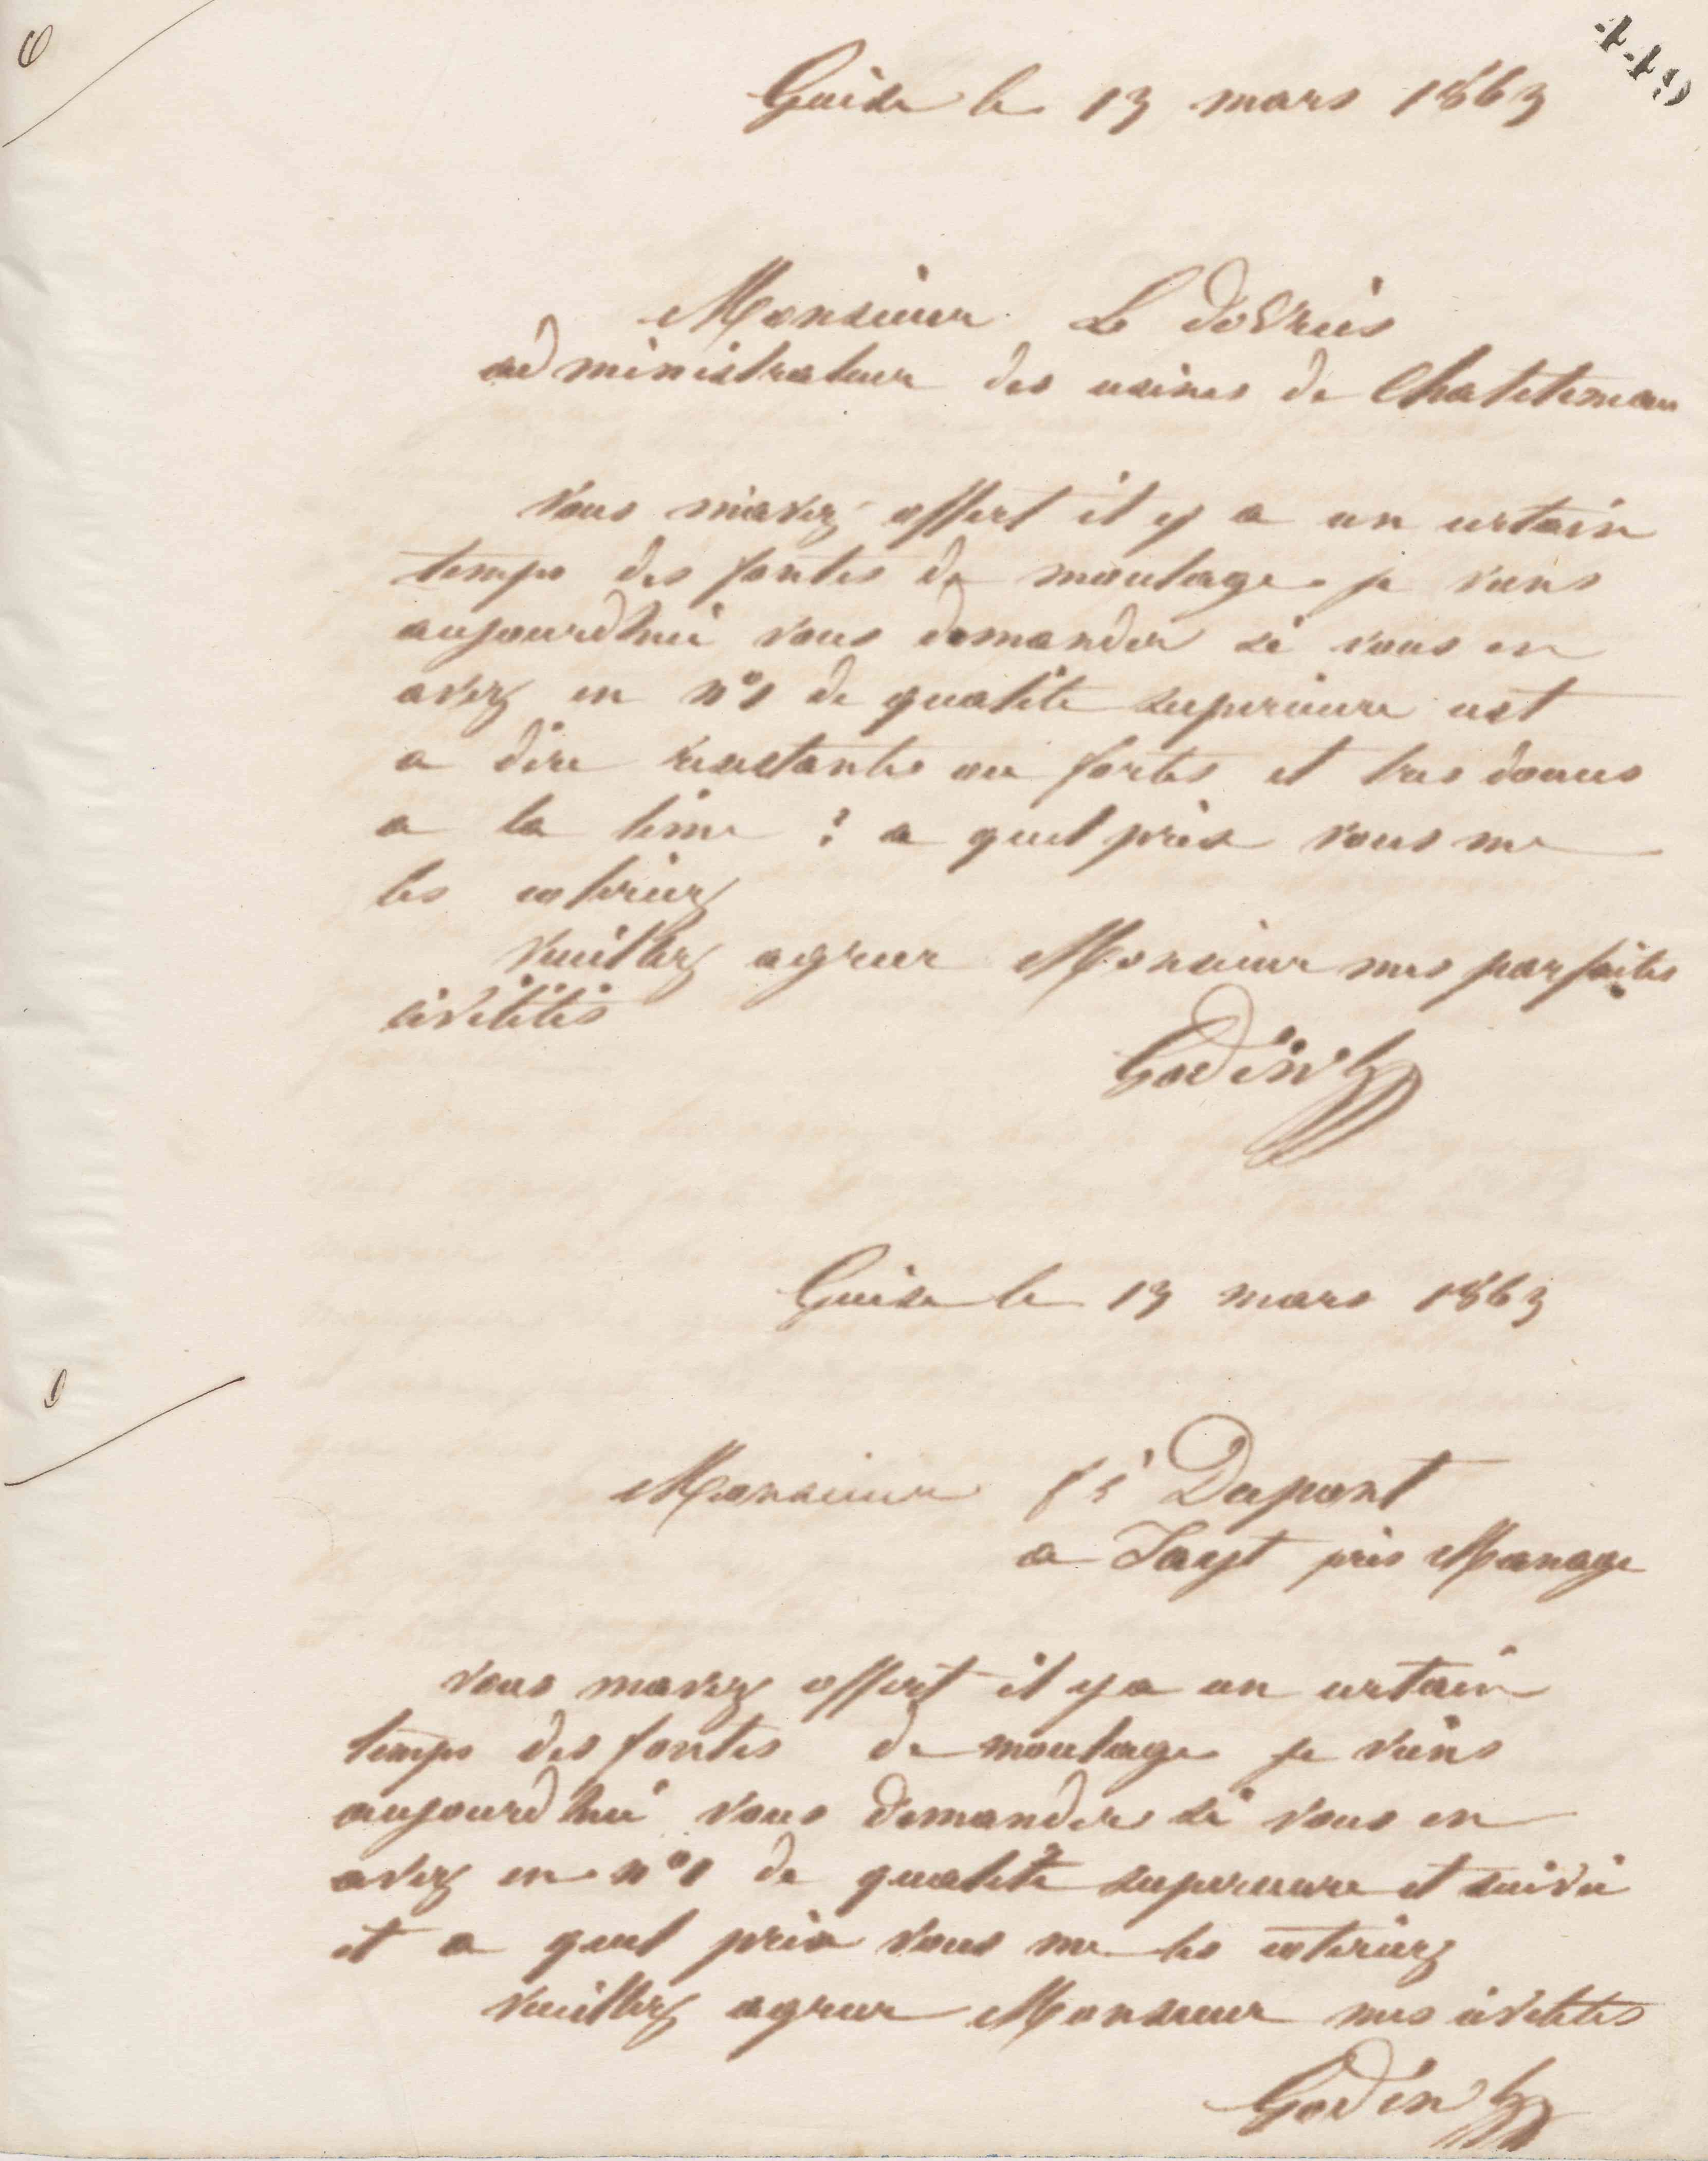 449
Guise le 13 mars 1863
Monsieur
administrateur des usines de Chateleneau
Vous m'avez offert il y a un certain
temps des fontes de moulage je viens
aujourdhui vous demander si vous en
avez en n°1 de qualité superieure cest
a dire resistantes ou fortes et tres douces
a la lime : a quel prix vous me
les coteriez
Veuillez agreer Monsieur mes parfaites
civilités
Godin
Guise le 13 mars 1863
Monsieur Dupont
a Fayt près Manage
Vous mavez offert il y a un certain
temps des fontes de moulage je viens
aujourdhui vous demander si vous en
avez en n°1 de qualité superieure et suivie
et a quel prix vous me les coteriez
Veuillez agreer Monsieur mes civilités
Godin